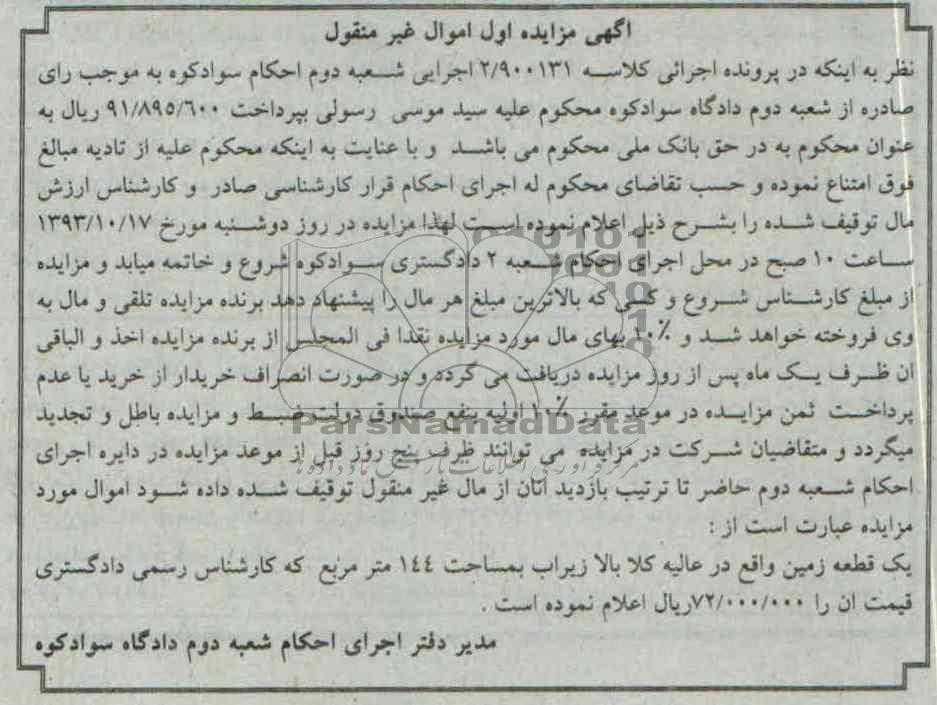 اگهی مزایده اول اموال غیر منقول
نظر به اینکه در پرونده اجرائی کلاسه ۲/۹۰۰۱۳۱ اجرایی شعبه دوم احکام سوادکوه به موجب رای
صادره از شعبه دوم دادگاه سوادکوه محکوم علیه سید موسی رسولی بپرداخت ۹۱/۸۹۵/۶۰۰ ریال به
عنوان محکوم به در حق بانک ملی محکوم می باشد و با عنایت به اینکه محکوم علیه از تادیه مبالغ
فوق امتناع نموده و حسب تقاضای محکوم له اجرای احکام قرار کارشناسی صادر و کارشناس ارزش
مال توقیف شده را بشرح ذیل اعلام نموده است لهذا مزایده در روز دوشنبه مورخ ۱۳۹۳/۱۰/۱۷
ساعت ۱۰ صبح در محل اجرای احکام شعبه ۲ دادگستری سوادکوه شروع و خاتمه میابد و مزایده
از مبلغ کارشناس شروع و کسی که بالاترین مبلغ هر مال را پیشنهاد دهد برنده مزایده تلقی و مال به
وی فروخته خواهد شد و ۱۰٪ بهای مال مورد مزایده نقدا فی المجلس از برنده مزایده اخذ و الباقی
ان ظرف یک ماه پس از روز مزایده دریافت می گردد و در صورت انصراف خریدار از خرید یا عدم
پرداخت ثمن مزایده در موعد مقرر ۱۰٪ اولیه بنفع صندوق دولت ضبط و مزایده باطل و تجدید
میگردد و متقاضیان شرکت در مزایده می توانند ظرف پنج روز قبل از موعد مزایده در دایره اجرای
احکام شعبه دوم حاضر تا ترتیب بازدید آنان از مال غیر منقول توقیف شده داده شود اموال مورد
مزایده عبارت است از :
یک قطعه زمین واقع در عالیه کلا بالا زیراب بمساحت ۱۴۴ متر مربع که کارشناس رسمی دادگستری
قیمت ان را ۷۲/۰۰۰/۰۰۰ریال اعلام نموده است .
مدیر دفتر اجرای احکام شعبه دوم دادگاه سوادکوه
ParsNamadData